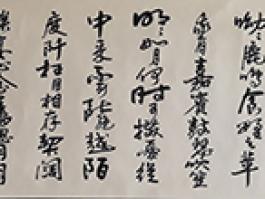 呦呦鹿鳴食野之苹
我有嘉賓鼓瑟吹笙
明明如月何時可掇憂從
中來不可斷絕越陌
度阡枉用相存契闊
心念舊恩月明